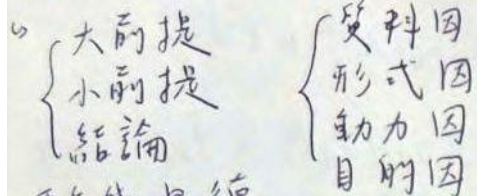 大前提
小前提
結論
質料因
形式因
動力因
目的因